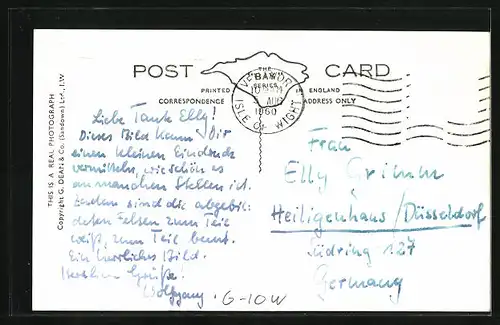 POST CARD
THE
"BAY"
SERIES
PRINTED IN ENGLAND
CORRESPONDENCE ADDRESS ONLY
VENTNOR
AUG
1960
ISLE OF WIGHT
THIS IS A REAL PHOTOGRAPH
Copyright G. DEAN & Co. (Sandown) Ltd., I.W
Liebe Tante Elly!
Dieses Bild kann Dir
einen kleinen Eindruck
vermitteln, wie schön es
an manchen Stellen ist.
sind die abgebil-
deten Felsen zum Teil
weiß, zum Teil bunt.
Ein herrliches Bild.
Herzliche Grüße!
Wolfgang
G-10W
Frau
Elly Grimm
Heiligenhaus/Düsseldorf
Südring 127
Germany